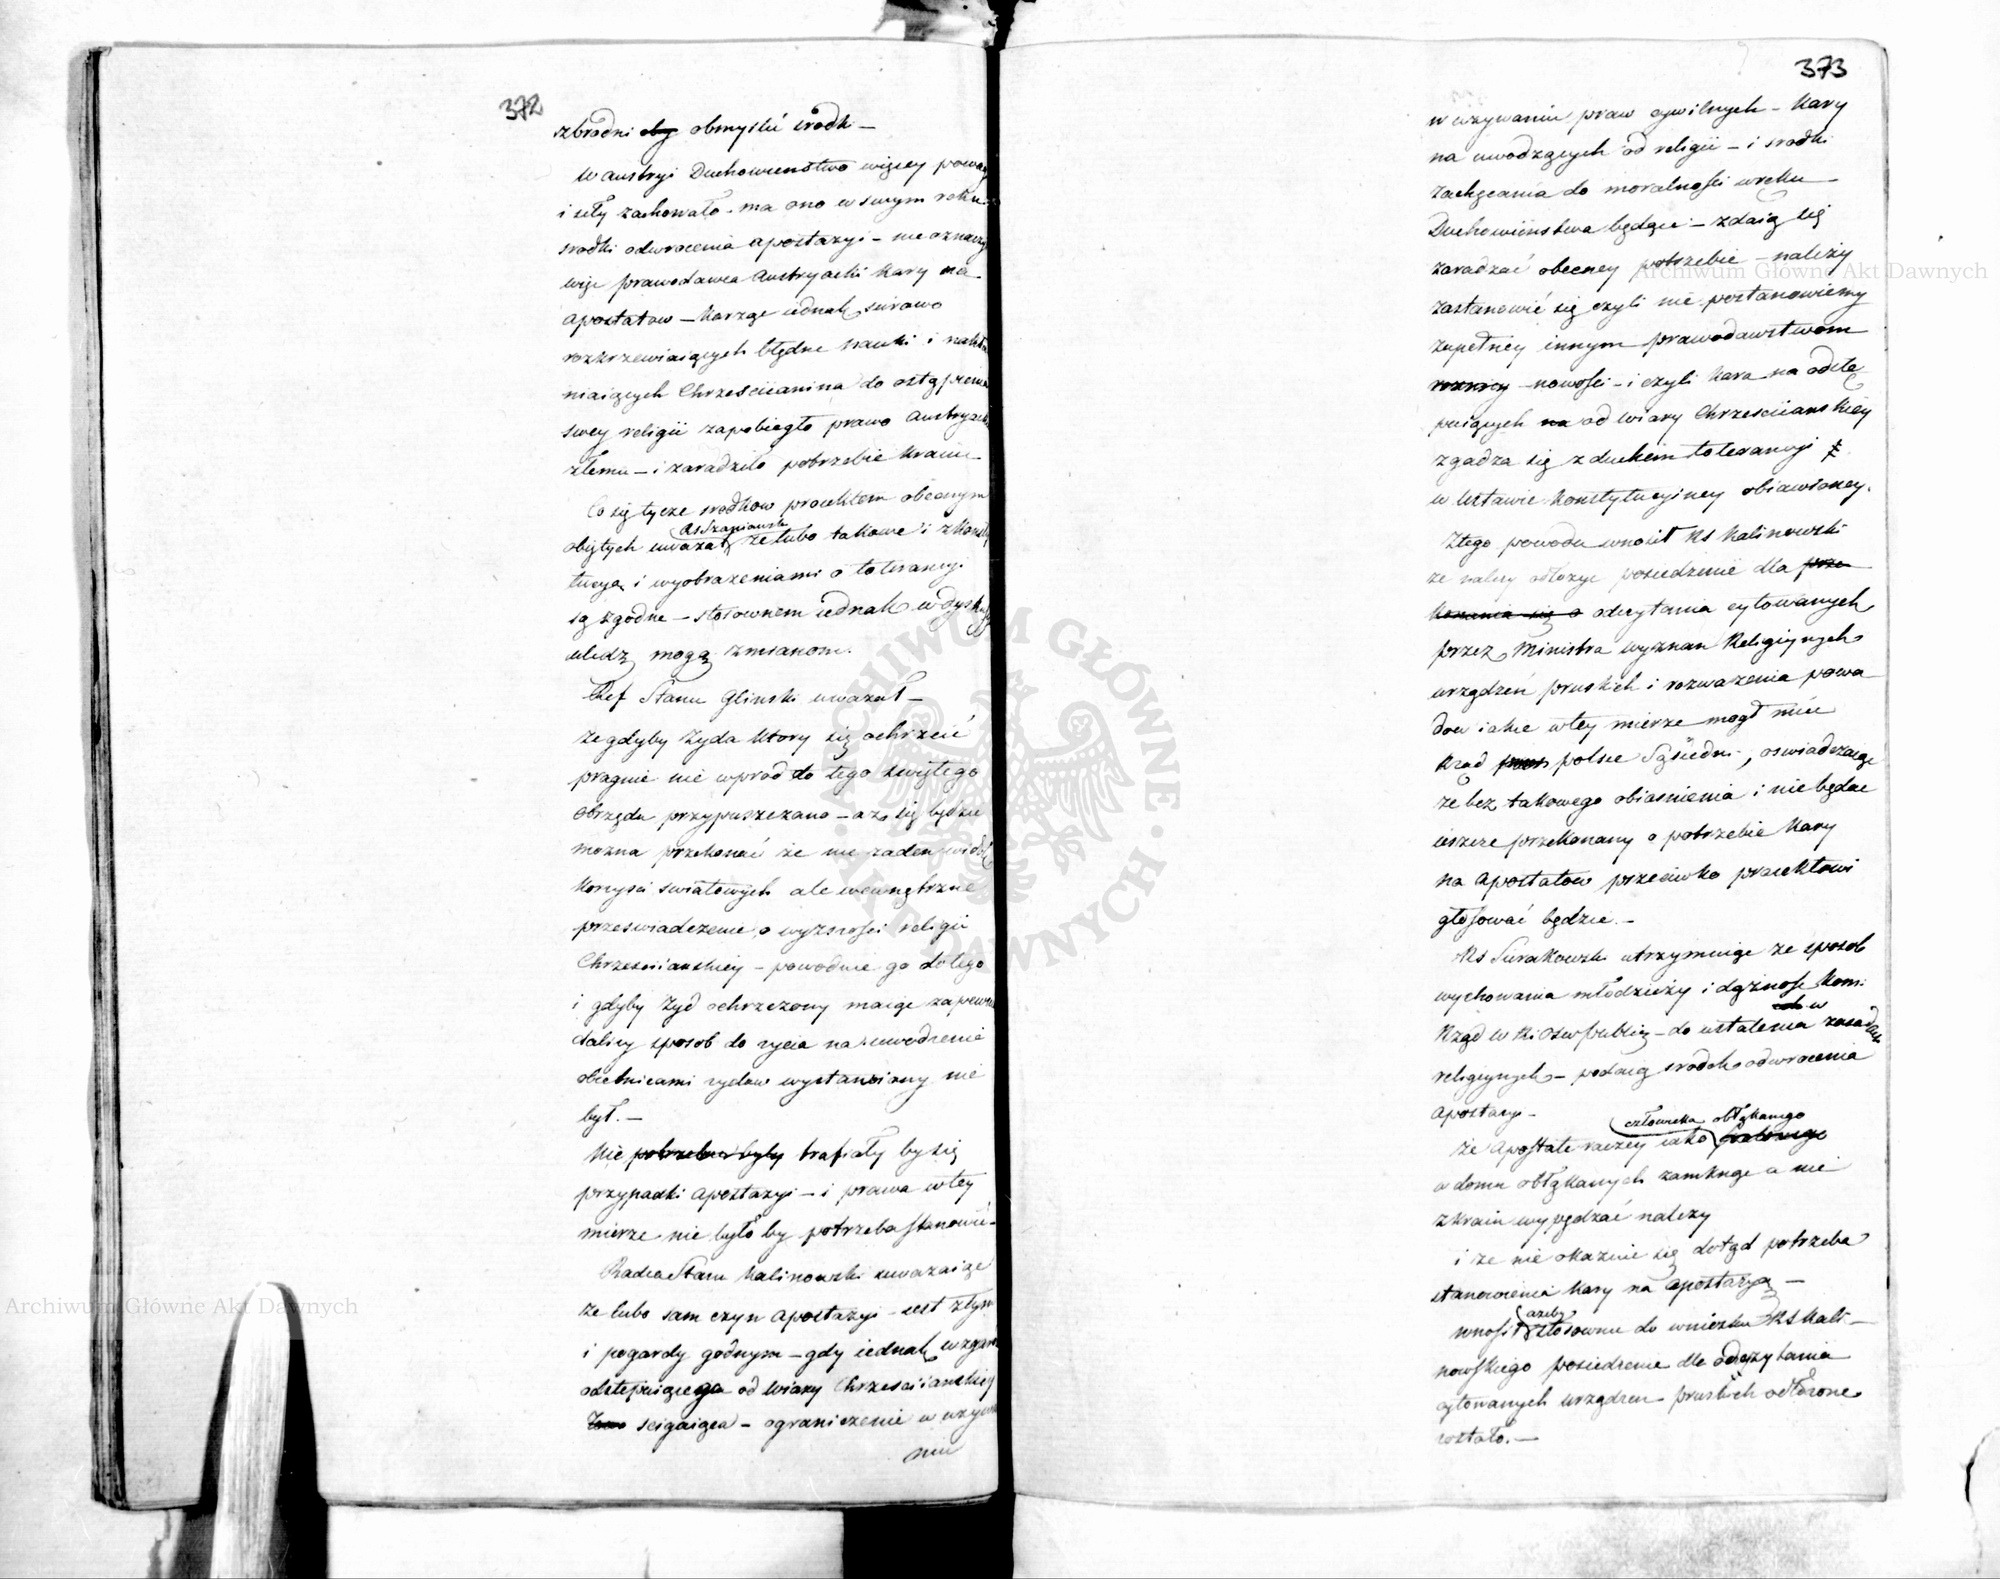 372
zbrodni aby obmyslić srodk —
W Austryi Duchowienstwo więcey powag
i siły zachowało - ma ono w swym ręku
srodki odwrocenia apostazyi - nie oznaczył
więc prawodawca Austryacki kary na
apostatow — karząc iednak surowo
rozkrzewiaiących błędne nauki i nakła
niaiących Chrzescianina do odstąpienia
swey religii zapobiegło prawo Austryack
złemu — i zaradziło potrzebie kraiu —
Co się tycze srodkow proiektem obecnym
Rs Szaniawski
obiętych uwazał ze lubo takowe i z Konsty
tucyą i wyobrazeniami o tolerancyi
są zgodne — stosownem iednak w dyskussyi
uledz mogą zmianom.
Ref Stanu Glinski uwazał —
ze gdyby Zyda ktory się ochrzcić
pragnie nie wprod do tego swiętego
obrzędu przypuszczano — az się będzie
mozna przekonać że nie zaden widok
korzysci swiatowych ale wewnętrzne
przeswiadczenie o wyzszosci religii
Chrzescianskiey - powoduie go do tego
i gdyby Zyd ochrzczony maiąc zapewn
dalszy sposob do zycia na uwodzenie
obietnicami zydow wystawiony nie
był. —
Nie potrzebne były trafiały by się
przypadki apostazyi — i prawa w tey
mierze nie było by potrzeba stanowić -
Radca Stanu Kalinowski uwazaiąc
ze lubo sam czyn apostazyi - iest złym
i pogardy godnym — gdy iednak wzgar
odstępuiącego od wiary Chrzescianskiey
scigaiąca — ograniczenie w uzywa
niu
373
w uzywaniu praw cywilnych - kary
na uwodzących od religii — i srodki
zachęcania do moralnosci w ręku
Duchowieństwa będące — zdaią się
zaradzać obecney potrzebie — należy
zastanowić się czyli nie postanowiemy
zupełney innym prawodawstwom
rozniey — nowosci - i czyli kara na odstę
puiących na od wiary Chrzescianskiey
zgadza się z duchem tolerancyi
w Ustawie Konstytucyiney obiawioney.
Z tego powodu wnosił Rs Kalinowski
ze nalezy odłozyc posiedzenie dla prze
konania się o odczytania cytowanych
przez Ministra wyznan Religiynych
urządzeń pruskich i rozwazenia powo
dow iakie w tey mierze mogł mieć
Rząd prus polsce Sąsiedni, oswiadczaiąc
że bez takowego obiasnienia i nie będąc
ieszcze przekonany o potrzebie kary
na apostatow przeciwko proiektowi
głosować będzie. —
Rs Surakowski utrzymuiąc ze sposob
wychowania młodzieży i dążnosc Kom:
w
Rząd W Ri Osw publicz — do ustalenia zasadach
religiynych — podaią srodek odwrocenia
apostazyi -
człowieka obłąkanego
że Apostate raczey iako
w domu obłąkanych zamknąc a nie
z kraiu wypędzać nalezy
i ze nie okazuie się dotąd potrzeba
stanowienia kary na apostazyą —
azeby
wnosił stosownie do wniosku Rs Kali —
nowskiego posiedzenie dla odczytania
cytowanych urządzen pruskich odłozone
zostało. —
Archiwum Główne Akt Dawnych
Archiwum Główne Akt Dawnych
ARCHIWUM GŁÓWNE AKT DAWNYCH